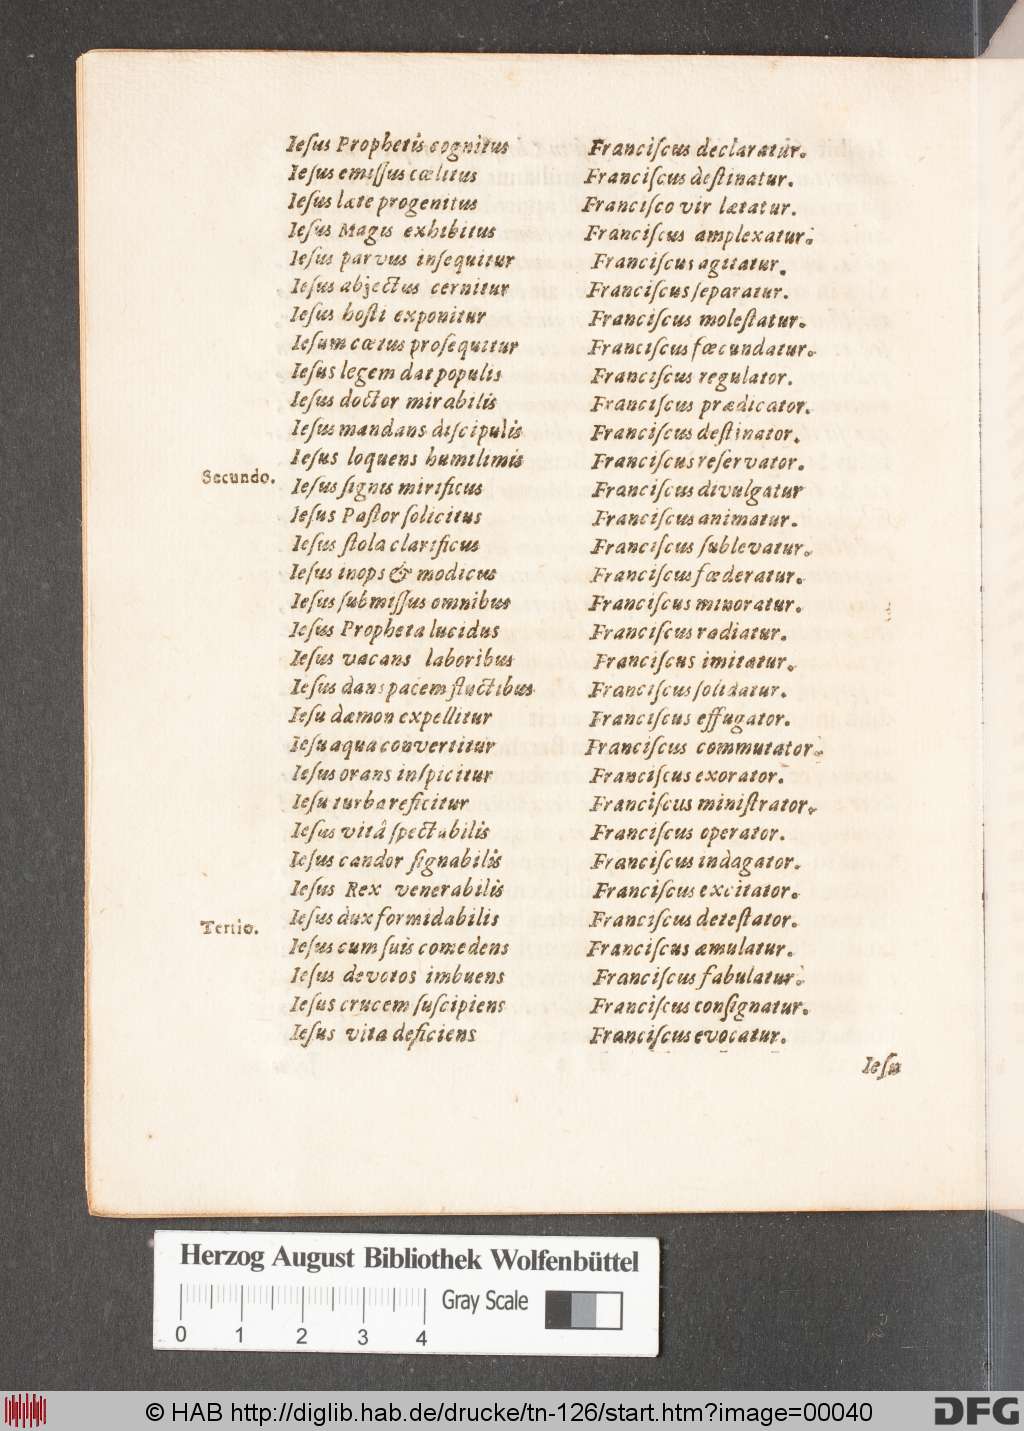 Ieſus Prophetis cognitus Franciſcus declaratur.
Ieſus emiſſus cœlitus Franciſcus deſtinatur.
Ieſus læte progenitus Franciſco vir lætatur.
Ieſus Magis exhibitus Franciſcus amplexatur.
Ieſus parvus inſequitur Franciſcus agitatur.
Ieſus abjectus cernitur Franciſcus ſeparatur.
Ieſus hoſti exponitur Franciſcus moleſtatur.
Ieſum cœtus proſequitur Franciſcus fœcundatur.
Ieſus legem dat populis Franciſcus regulator.
Ieſus doctor mirabilis Franciſcus prædicator.
Ieſus mandans diſcipulis Franciſcus deſtinator.
Ieſus loquens humilimis Franciſcus reſervator.
Secundo. Ieſus ſignis mirificus Franciſcus divulgatur
Ieſus Paſtor ſolicitus Franciſcus animatur.
Ieſus ſtola clarificus Franciſcus ſublevatur.
Ieſus inops & modicus Franciſcus fœderatur.
Ieſus ſubmiſſus omnibus Franciſcus minoratur.
Ieſus Propheta lucidus Franciſcus radiatur.
Ieſus vacans laboribus Franciſcus imitatur.
Ieſus dans pacem fluctibus Franciſcus ſolidatur.
Ieſu dæmon expellitur Franciſcus effugator.
Ieſu aqua convertitur Franciſcus commutator.
Ieſus orans inſpicitur Franciſcus exorator.
Ieſu turba reficitur Franciſcus miniſtrator.
Ieſus vitâ ſpectabilis Franciſcus operator.
Ieſus candor ſignabilis Franciſcus indagator.
Ieſus Rex venerabilis Franciſcus excitator.
Tertio. Ieſus dux formidabilis Franciſcus deteſtator.
Ieſus cum ſuis comedens Franciſcus æmulatur.
Ieſus devotos imbuens Franciſcus fabulatur.
Ieſus crucem ſuſcipiens Franciſcus conſignatur.
Ieſus vita deficiens Franciſcus evocatur.
Ieſu
Herzog August Bibliothek Wolfenbüttel
Gray Scale
0 1 2 3 4
© HAB http://diglib.hab.de/drucke/tn-126/start.htm?image=00040
DFG